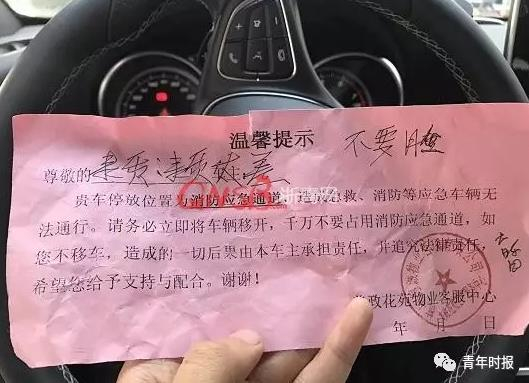 温馨提示 不要脸
尊敬的
贵车停放位置为消防应急通道，造成急救、消防等应急车辆无
法通行。请务必立即将车辆移开，千万不要占用消防应急通道，如
您不移车，造成的一切后果由本车主承担责任，并追究法律责任，
希望您给予支持与配合。谢谢！
政花苑物业客服中心
年 月 日
青年时报